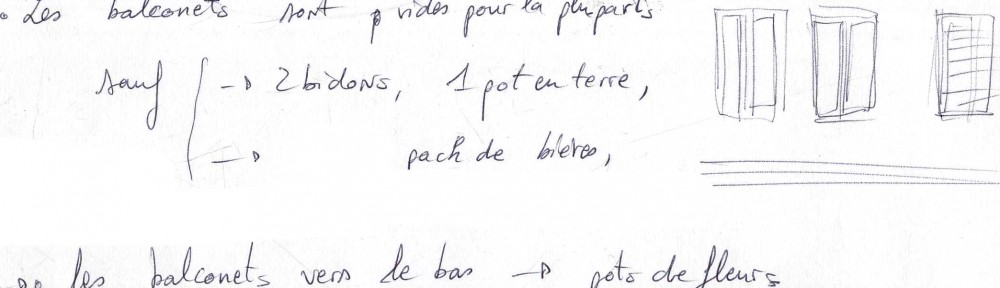 • Les balconets sont vides pour la pluparts
sauf → 2 bidons, 1 pot en terre,
→ pack de bières,
les balconets vers le bas → pots de fleurs